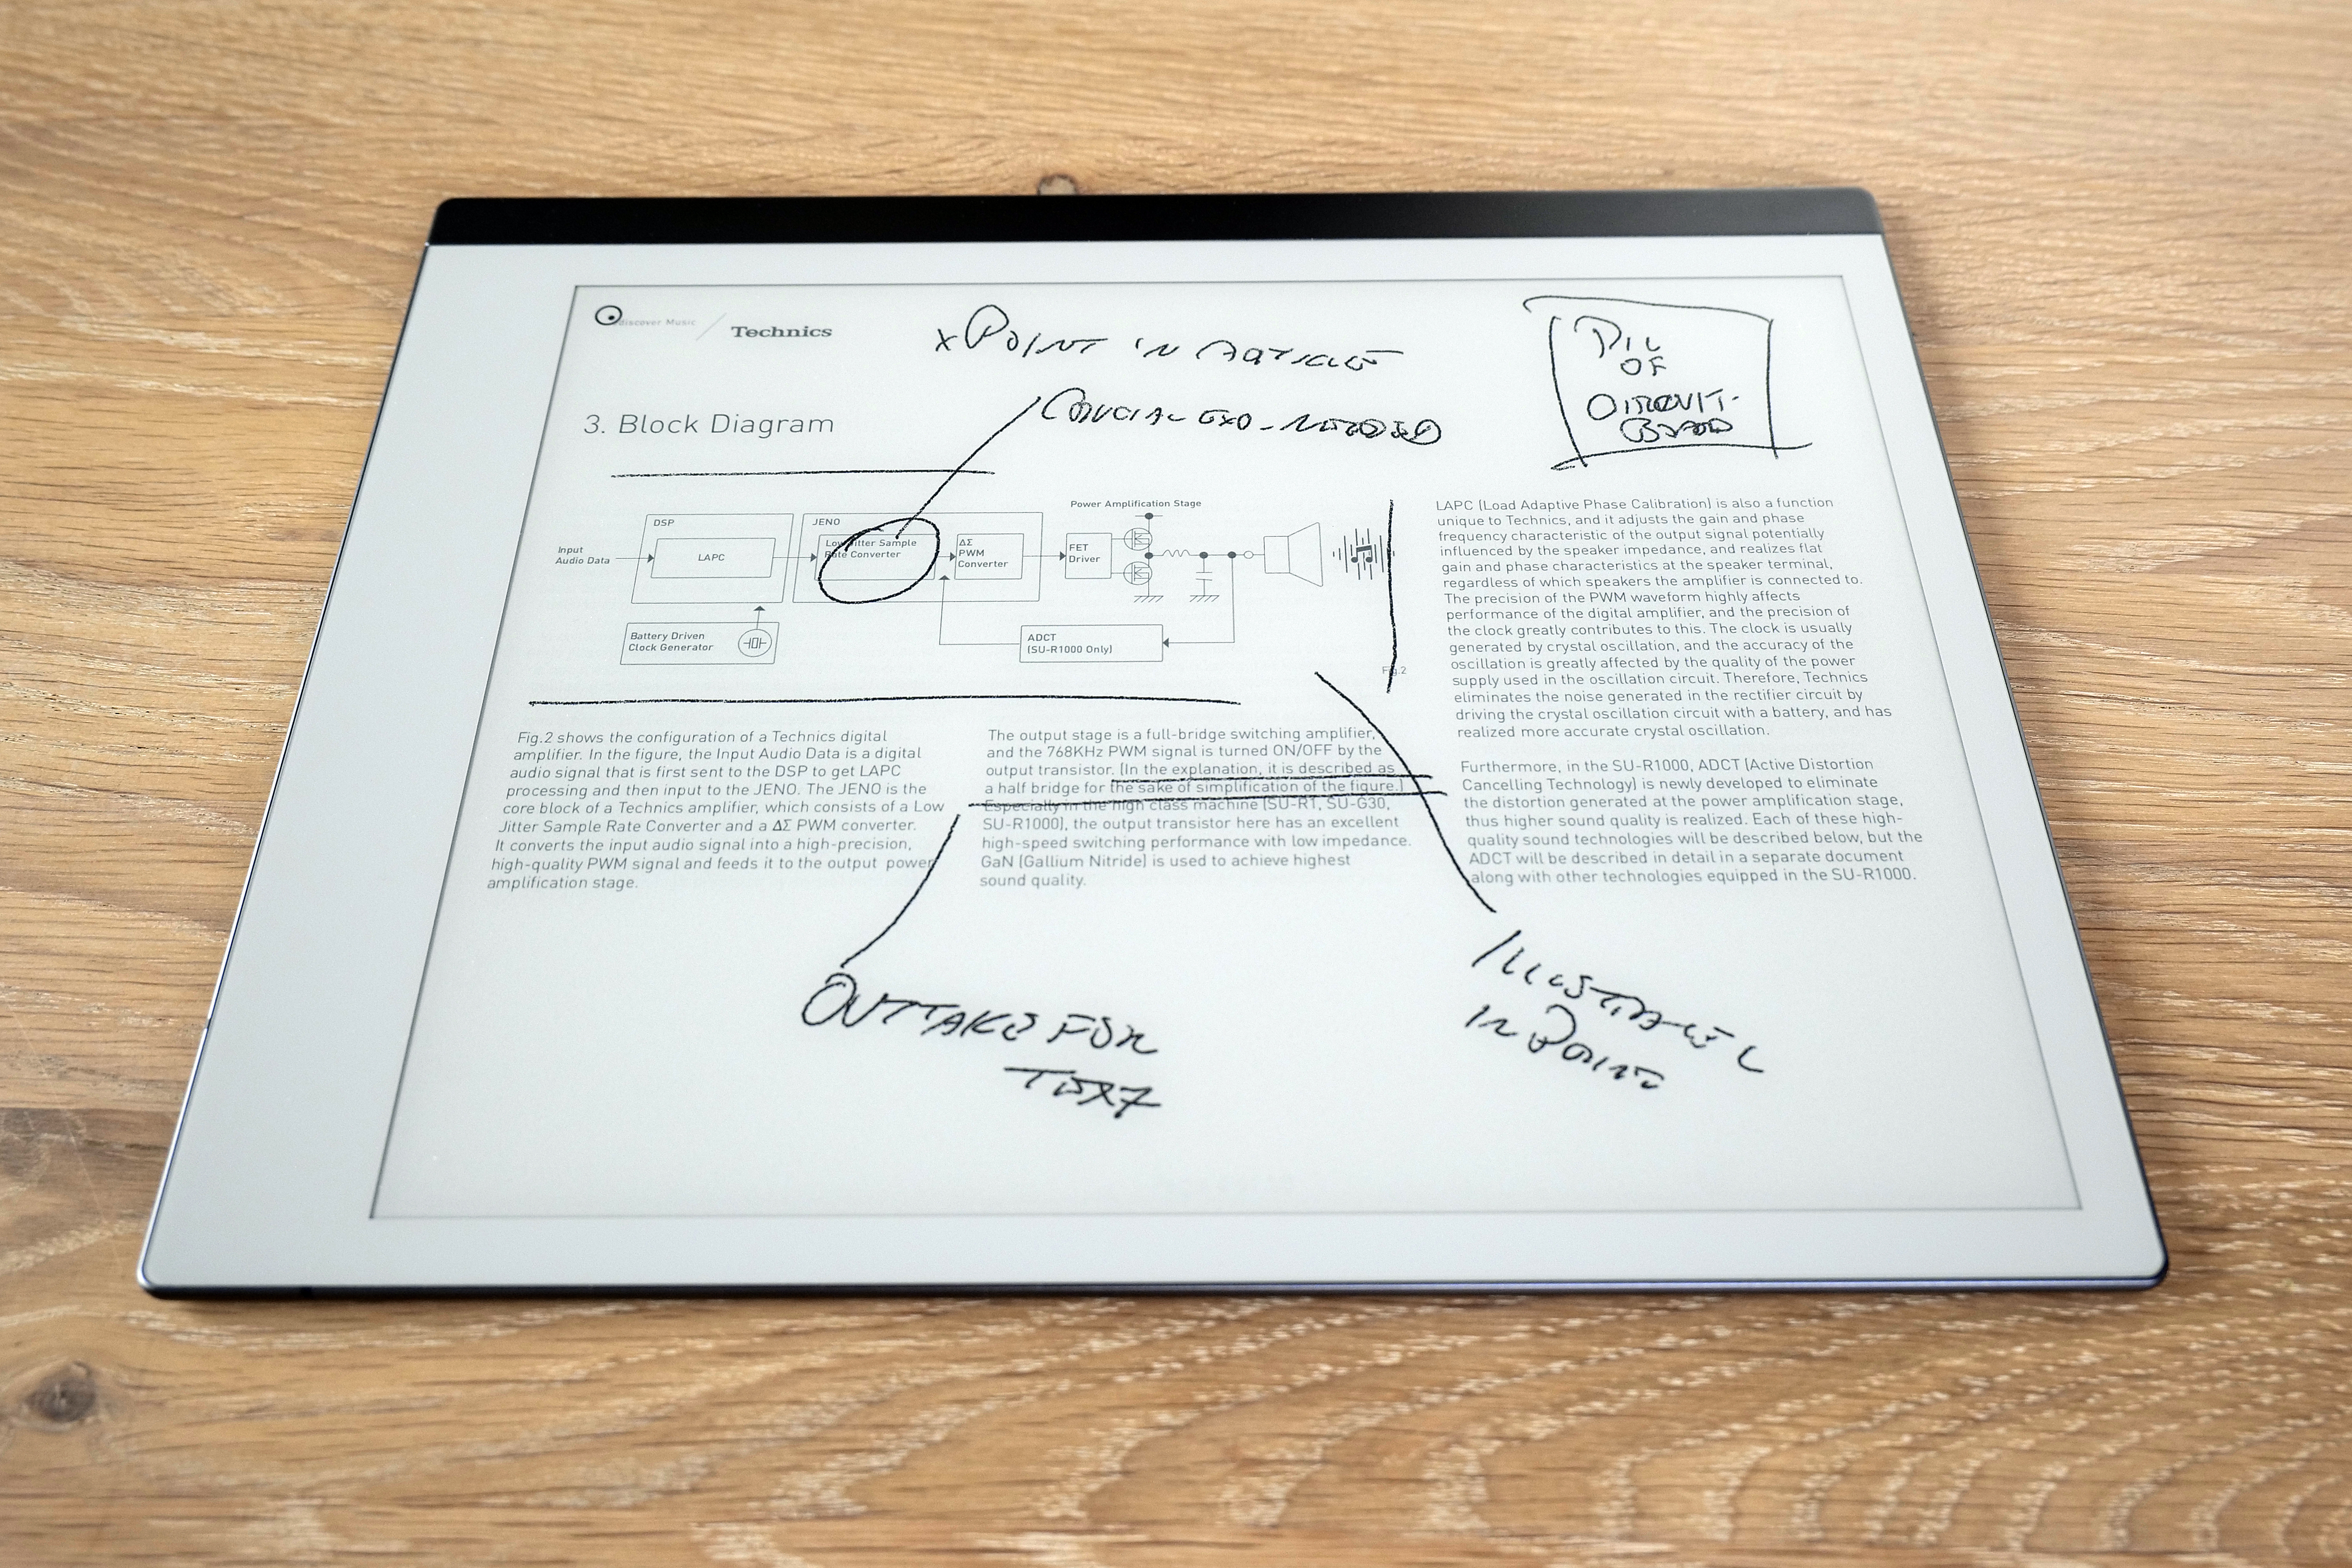 Discover Music / Technics
x POINT IN ARTICLE
CRUCIAL EXO-NEEDED
PIC
OF
CIRCUIT-
BOARD
3. Block Diagram
Power Amplification Stage
DSP
JENO
Input
Audio Data
LAPC
Low Jitter Sample
Rate Converter
ΔΣ
PWM
Converter
FET
Driver
Battery Driven
Clock Generator
ADCT
(SU-R1000 Only)
Fig.2
Fig.2 shows the configuration of a Technics digital
amplifier. In the figure, the Input Audio Data is a digital
audio signal that is first sent to the DSP to get LAPC
processing and then input to the JENO. The JENO is the
core block of a Technics amplifier, which consists of a Low
Jitter Sample Rate Converter and a ΔΣ PWM converter.
It converts the input audio signal into a high-precision,
high-quality PWM signal and feeds it to the output power
amplification stage.
The output stage is a full-bridge switching amplifier,
and the 768KHz PWM signal is turned ON/OFF by the
output transistor. (In the explanation, it is described as
a half bridge for the sake of simplification of the figure.)
Especially in the high class machine (SU-R1, SU-G30,
SU-R1000), the output transistor here has an excellent
high-speed switching performance with low impedance.
GaN (Gallium Nitride) is used to achieve highest
sound quality.
LAPC (Load Adaptive Phase Calibration) is also a function
unique to Technics, and it adjusts the gain and phase
frequency characteristic of the output signal potentially
influenced by the speaker impedance, and realizes flat
gain and phase characteristics at the speaker terminal,
regardless of which speakers the amplifier is connected to.
The precision of the PWM waveform highly affects
performance of the digital amplifier, and the precision of
the clock greatly contributes to this. The clock is usually
generated by crystal oscillation, and the accuracy of the
oscillation is greatly affected by the quality of the power
supply used in the oscillation circuit. Therefore, Technics
eliminates the noise generated in the rectifier circuit by
driving the crystal oscillation circuit with a battery, and has
realized more accurate crystal oscillation.
Furthermore, in the SU-R1000, ADCT (Active Distortion
Cancelling Technology) is newly developed to eliminate
the distortion generated at the power amplification stage,
thus higher sound quality is realized. Each of these high-
quality sound technologies will be described below, but the
ADCT will be described in detail in a separate document
along with other technologies equipped in the SU-R1000.
OUTTAKE FOR
TEXT
IN